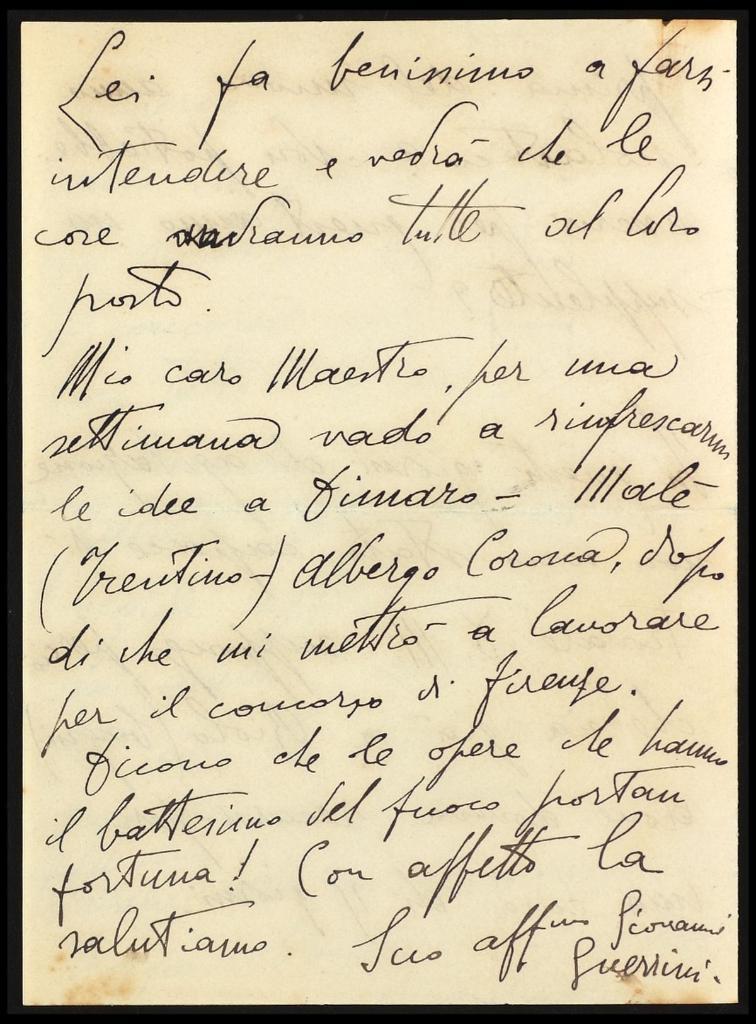 Lei fa benissimo a farsi
intendere e vedrà che le
cose andranno tutte al loro
posto.
Mio caro Maestro, per una
settimana vado a rinfrescarmi
le idee a Dimaro - Malè
(Trentino-) Albergo Corona, dopo
di che mi mettrò a lavorare
per il concorso di Firenze.
Dicono che le opere che hanno
il battesimo del fuoco portan
fortuna! Con affetto la
salutiamo. Suo affmo Giovanni
Guerrini.